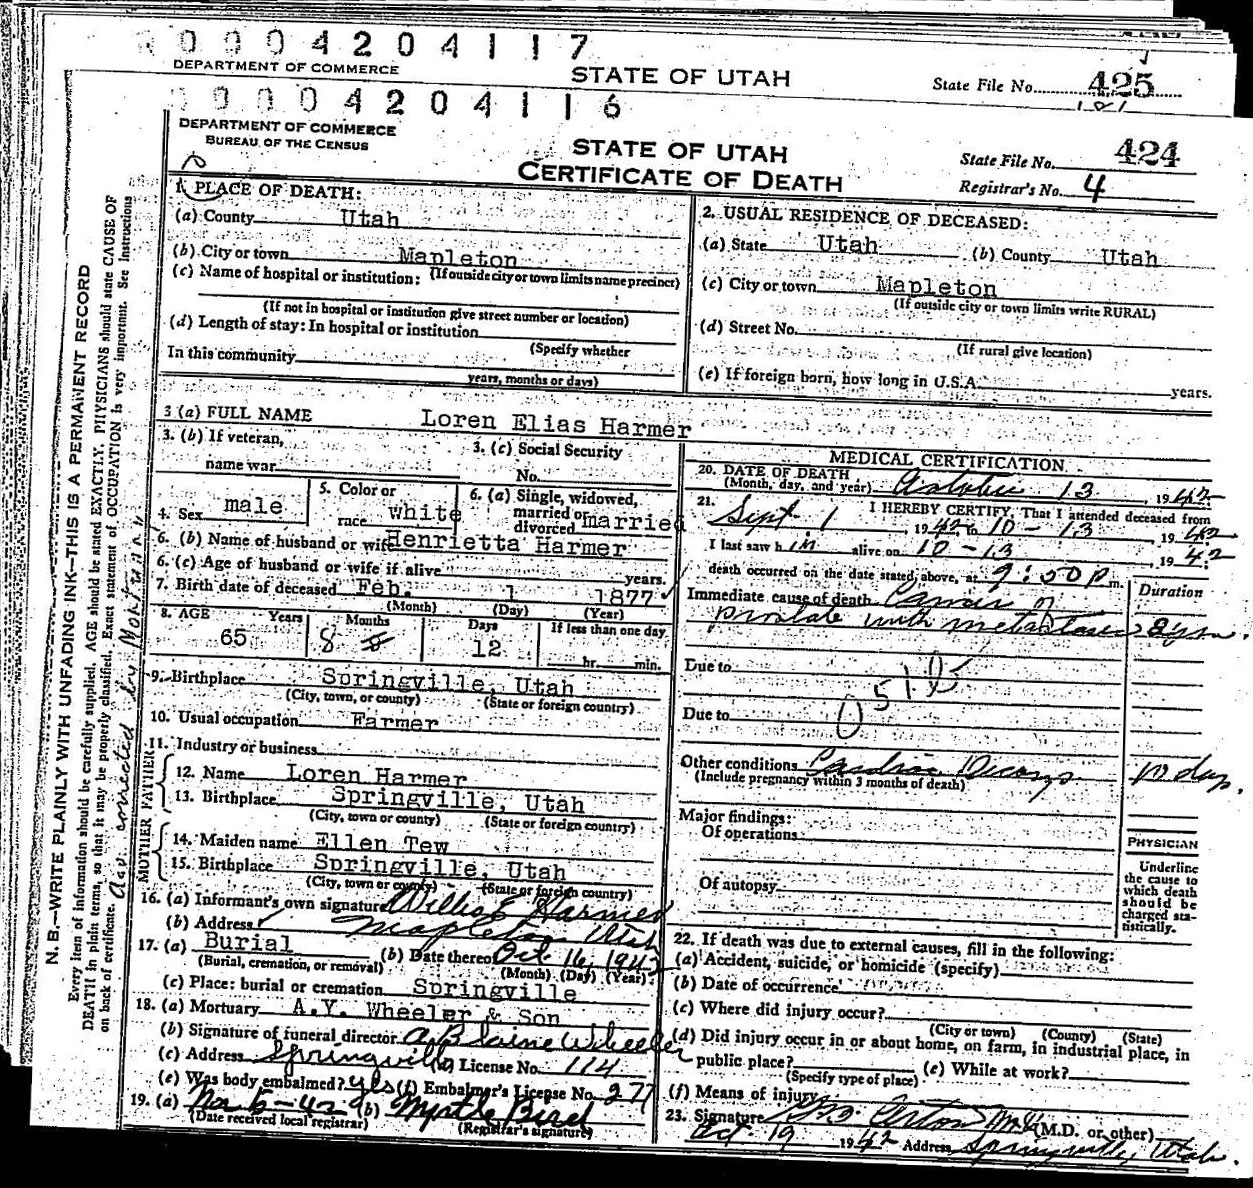 0 0 0 4 2 0 4 1 1 7
DEPARTMENT OF COMMERCE
STATE OF UTAH
State File No. 425
0 0 0 0 4 2 0 4 1 1 6
DEPARTMENT OF COMMERCE
BUREAU OF THE CENSUS
STATE OF UTAH
CERTIFICATE OF DEATH
State File No. 424
Registrar's No. 4
N. B.—WRITE PLAINLY WITH UNFADING INK—THIS IS A PERMANENT RECORD
Every item of information should be carefully supplied. AGE should be stated EXACTLY. PHYSICIANS should state CAUSE OF
DEATH in plain terms, so that it may be properly classified. Exact statement of OCCUPATION is very important. See instructions
on back of certificate. Age corrected by Mortuary
1. PLACE OF DEATH:
(a) County Utah
(b) City or town Mapleton
(If outside city or town limits name precinct)
(c) Name of hospital or institution:
(If not in hospital or institution give street number or location)
(d) Length of stay: In hospital or institution
(Specify whether
In this community
years, months or days)
2. USUAL RESIDENCE OF DECEASED:
(a) State Utah (b) County Utah
(c) City or town Mapleton
(If outside city or town limits write RURAL)
(d) Street No.
(If rural give location)
(e) If foreign born, how long in U.S.A. years.
3 (a) FULL NAME Loren Elias Harmer
3. (b) If veteran,
name war
3. (c) Social Security
No.
4. Sex male
5. Color or
race white
6. (a) Single, widowed,
married or
divorced married
6. (b) Name of husband or wife Henrietta Harmer
6. (c) Age of husband or wife if alive years.
7. Birth date of deceased Feb. 1 1877
(Month) (Day) (Year)
8. AGE Years Months Days If less than one day
65 8 12 hr. min.
9. Birthplace Springville, Utah
(City, town, or county) (State or foreign country)
10. Usual occupation Farmer
11. Industry or business
FATHER
12. Name Loren Harmer
13. Birthplace Springville, Utah
(City, town or county) (State or foreign country)
MOTHER
14. Maiden name Ellen Tew
15. Birthplace Springville, Utah
(City, town or county) (State or foreign country)
16. (a) Informant's own signature Willis E Harmer
(b) Address Mapleton Utah
17. (a) Burial (b) Date thereof Oct 16, 1942
(Burial, cremation, or removal) (Month) (Day) (Year)
(c) Place: burial or cremation Springville
18. (a) Mortuary A.Y. Wheeler & Son
(b) Signature of funeral director A Blaine Wheeler
(c) Address Springville (d) License No. 114
(e) Was body embalmed? yes (f) Embalmer's License No. 277
19. (a) Nov 5-42 (b) Myrtle Bird
(Date received local registrar) (Registrar's signature)
MEDICAL CERTIFICATION
20. DATE OF DEATH
(Month, day, and year) October 13, 1942
21. I HEREBY CERTIFY, That I attended deceased from
Sept 1 1942 to 10-13, 1942
I last saw him alive on 10-13, 1942
death occurred on the date stated above, at 9:50 P m.
Duration
Immediate cause of death Cancer of
prostate with metastases 8 yrs.
Due to
Due to
Other conditions Cardiac Decomp 10 days.
(Include pregnancy within 3 months of death)
Major findings:
Of operations
Of autopsy
PHYSICIAN
Underline
the cause to
which death
should be
charged sta-
tistically.
22. If death was due to external causes, fill in the following:
(a) Accident, suicide, or homicide (specify)
(b) Date of occurrence
(c) Where did injury occur?
(City or town) (County) (State)
(d) Did injury occur in or about home, on farm, in industrial place, in
public place? (e) While at work?
(Specify type of place)
(f) Means of injury
23. Signature (M.D. or other)
Oct. 19 1942 Address Springville, Utah.